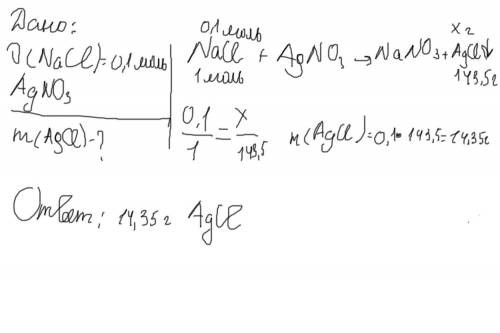 Дано:
ν(NaCl)=0,1 моль
AgNO3
m(AgCl)-?
0,1 моль x г
NaCl + AgNO3 → NaNO3 + AgCl↓
1 моль 143,5г
0,1/1 = x/143,5 m(AgCl)=0,1·143,5=14,35г
Ответ: 14,35г AgCl